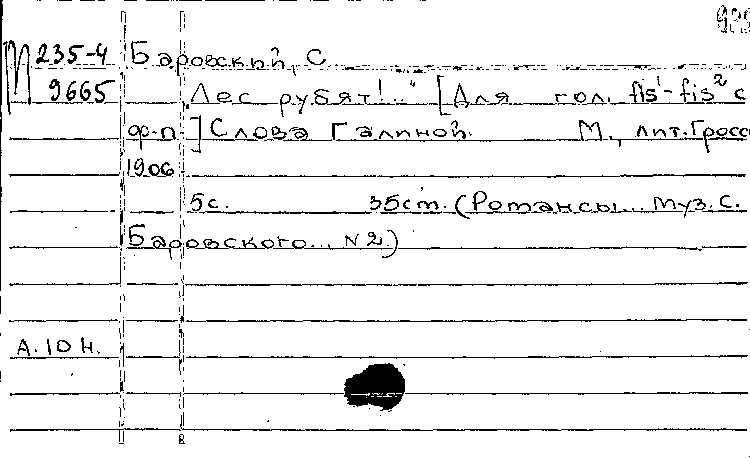 М 235-4 Баровский, С.
9665 „Лес рубят!..." [Для гол. fis¹-fis² с
ф-п.] Слова Галиной. М., лит. Гросс
1906
5с. 35см. (Романсы... муз. С.
Баровского... №2.)
А. ЮН.